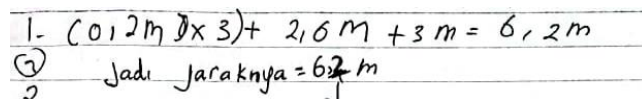 1- (0,2m)x3)+ 2,6m +3m = 6,2m
② Jadi Jaraknya = 6,2 m